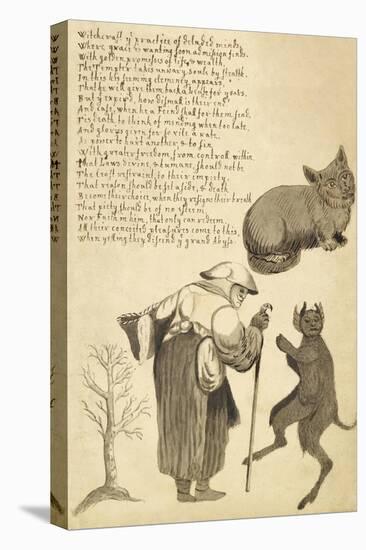 Witchcraft yᵉ practice of deluded minds
Where grace is wanting soon admission finds.
With golden promises of life, & wealth,
The Tempter takes unwary souls by stealth.
In this his seeming clemency appears,
That he will give them back a lease for years.
But yᵉ expir'd, how dismal is their end
And safe, when he a Fiend shall for them send.
Tis death to think of mending when too late,
And glorys given for so vile a rate.
his power to hurt another, & to sin
With greater freedom, from controll within
That Laws divine, & humane, should not be
The least restraint, to their impiety.
That reason should be sit aside, & death
Become their choice, when they resigne their breath
That piety should be of no esteem
Nor Faith in him, that only can redeem.
All their conceited pleasures come to this,
When yelling they discend yᵉ grand Abyss.